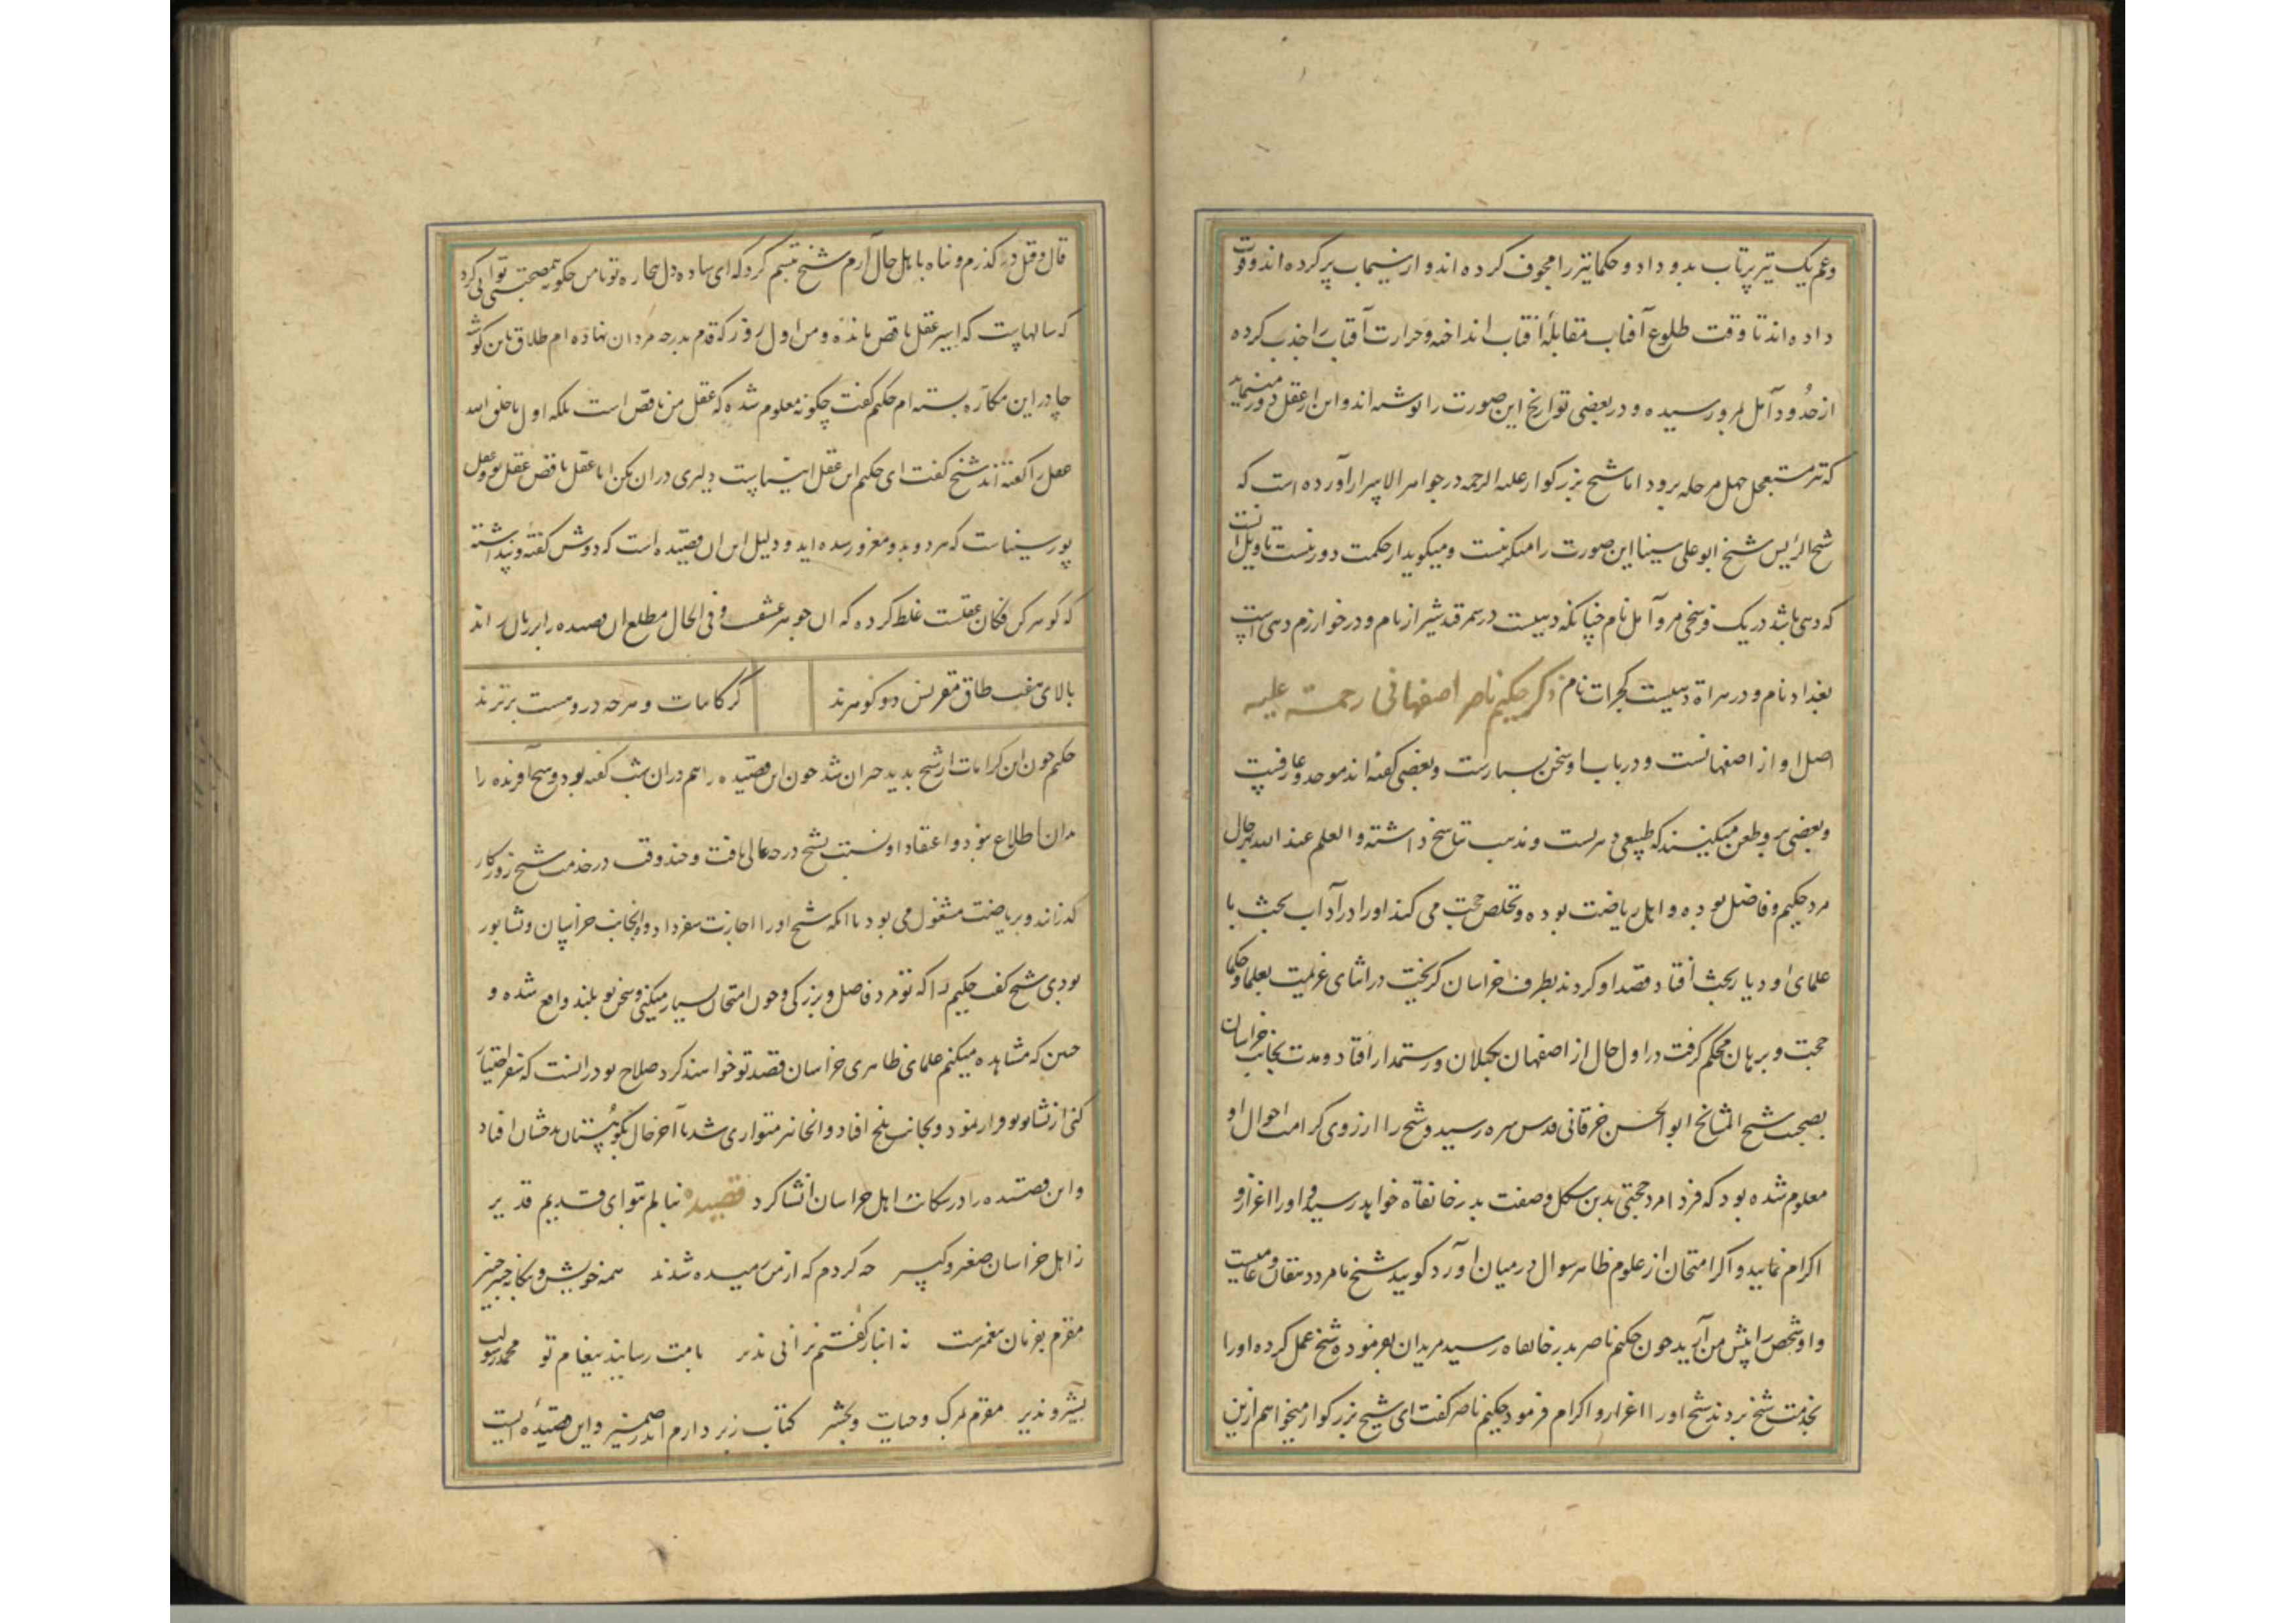 وعم یک تیر پرتاب بدو داد و حکما تیر را مجوف کرده‌اند و از سیماب پر کرده‌اند و وقت
داده‌اند تا وقت طلوع آفتاب مقابلهٔ آفتاب انداخته و حرارت آفتاب را جذب کرده
از حدود آمل بمرو رسیده و در بعضی تواریخ این صورت را نوشته‌اند و این از عقل دور مینماید
که تیر مستعجل چهل مرحله برود اما شیخ بزرکوار علیه الرحمه در جواهر الاسرار آورده است که
شیخ الرئیس شیخ ابو علی سینا این صورت را منکر نیست و میکوید از حکمت دور نیست تاویل آنست
که دهی باشد در یک فرسخی مرو آمل نام چنانکه دهیست در سمرقند شیراز نام و در خوارزم دهی است
بغداد نام و در هراة دهیست کجرات نام ذکر حکیم ناصر اصفهانی رحمة علیه
اصل او از اصفهانست و در باب او سخن بسیارست و بعضی کفته‌اند موحد و عارفیست
و بعضی برو طعن میکنند که طبیعی دهریست و مذهب تناسخ داشته و العلم عند الله بهرحال
مرد حکیم و فاضل بوده و اهل ریاضت بوده و تخلص حجت می کند او را در آداب بحث با
علمای او دیار بحث افتاد قصد او کردند بطرف خراسان کریخت در اثنای عزیمت بعلما و حکما
حجت و برهان محکم کرفت در اول حال از اصفهان بکیلان و رستمدار افتاد و مدت بجانب خراسان
بصحبت شیخ المشایخ ابو الحسن خرقانی قدس سره رسید و شیخ را از روی کرامت احوال او
معلوم شده بود که فردا مرد حجتی بدین شکل و صفت بدر خانقاه خواهد رسید او را اعزاز و
اکرام نمایید و اکر امتحان از علوم ظاهر سوال در میان آورد کویید شیخ ما مرد دهقان و عامیست
و او شخص را پیش من آرید چون حکیم ناصر بدر خانقاه رسید مریدان بفرموده شیخ عمل کرده او را
بخدمت شیخ بردند شیخ او را اعزاز و اکرام فرمود حکیم ناصر کفت ای شیخ بزرکوار میخواهم ازین
قال و قیل در کذرم و پناه با اهل حال آرم شیخ تبسم کرد که ای ساده دل بیچاره تو با من چکونه همصحبتی توانی کرد
که سالهاست که اسیر عقل ناقص مانده و من اول روز که قدم بدرجه مردان نهاده‌ام طلاق باین کوشه
چادر این مکاره بسته‌ام حکیم کفت چکونه معلوم شد که عقل من ناقص است بلکه اول ما خلق الله
عقل را کفته‌اند شیخ کفت ای حکیم این عقل انبیاست دلیری در ان مکن اما عقل ناقص عقل تو و عقل
پور سیناست که هر دو بدو مغرور شده‌اید و دلیل این آن قصیده است که دوش کفته و پنداشته
که کوهر کن فکان عقلست غلط کرده که آن جوهر عشقست و فی الحال مطلع ان قصیده را بر زبان راند
بالای هفت طاق مقرنس دو کوهرند کز کاینات و هرچه دروهست برترند
حکیم چون این کرامات از شیخ بدید حیران شد چون این قصیده را هم در ان شب کفته بود و هیچ آفریده را
بدان اطلاع نبود و اعتقاد او نسبت بشیخ درجه عالی یافت و چند وقت در خدمت شیخ روزکار
کذراند و بریاضت مشغول می بود تا انکه شیخ او را اجازت سفر داد و از انجانب خراسان و نشابور
بودی شیخ کفت حکیم را که تو مرد فاضل و بزرکی و چون امتحان بسیار میکنی و سخن تو بلند واقع شده و
چنین که مشاهده میکنم علمای ظاهری خراسان قصد تو خواهند کرد صلاح تو در انست که سفر اختیار
کنی از نشابور فرار نمود و بجانب بلخ افتاد و انجا نیز متواری شد تا آخر حال بکوهستان بدخشان افتاد
و این قصیده را در شکایت اهل خراسان انشا کرد قصیده بنالم بتو ای قدیم قدیر
ز اهل خراسان صغیر و کبیر چه کردم که از من رمیده شدند همه خویش و بیکانه خیر خیر
مقرم بفرمان پیغمبرت نه انباز کفتم ترا نی نذیر بامت رسانید پیغام تو محمد رسول
بشیر و نذیر مقرم بمرک و حیات و بحشر کتابت زبر دارم اندر ضمیر و این قصیده ایست